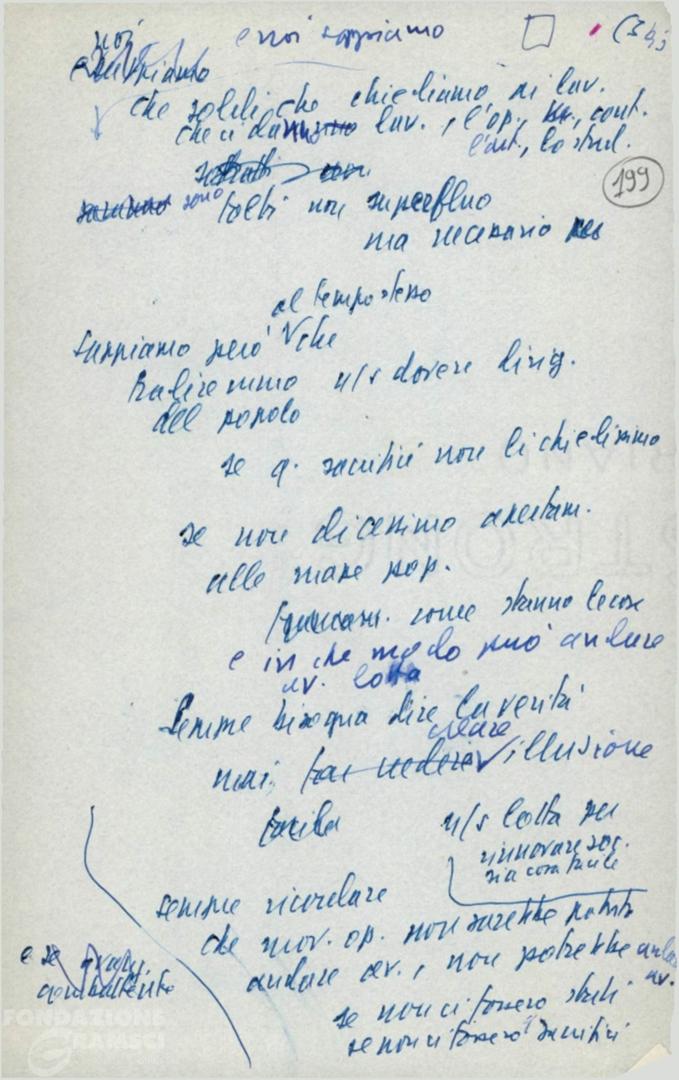 noi e noi sappiamo (3 bis
e sappiamo
che soldi che chiediamo ai lav.
che ci danno lav., l'op., cont.
l'art., lo stud.
199
sono tolti non superfluo
ma necessario
al tempo stesso
Sappiamo però che
tradiremmo n/s dovere dirig.
del popolo
se q. sacrifici non li chiedessimo
se non dicessimo apertam.
alle masse pop.
come stanno le cose
e in che modo può andare
av. lotta
Sempre bisogna dire la verità
creare
mai far vedere illusione
facile
n/s lotta per
rinnovare soc.
sia cosa facile
sempre ricordare
che mov. op. non sarebbe potuto
andare av., non potrebbe andare
av.
e se
combattente
se non ci fossero stati
se non ci fossero sacrifici
FONDAZIONE
GRAMSCI